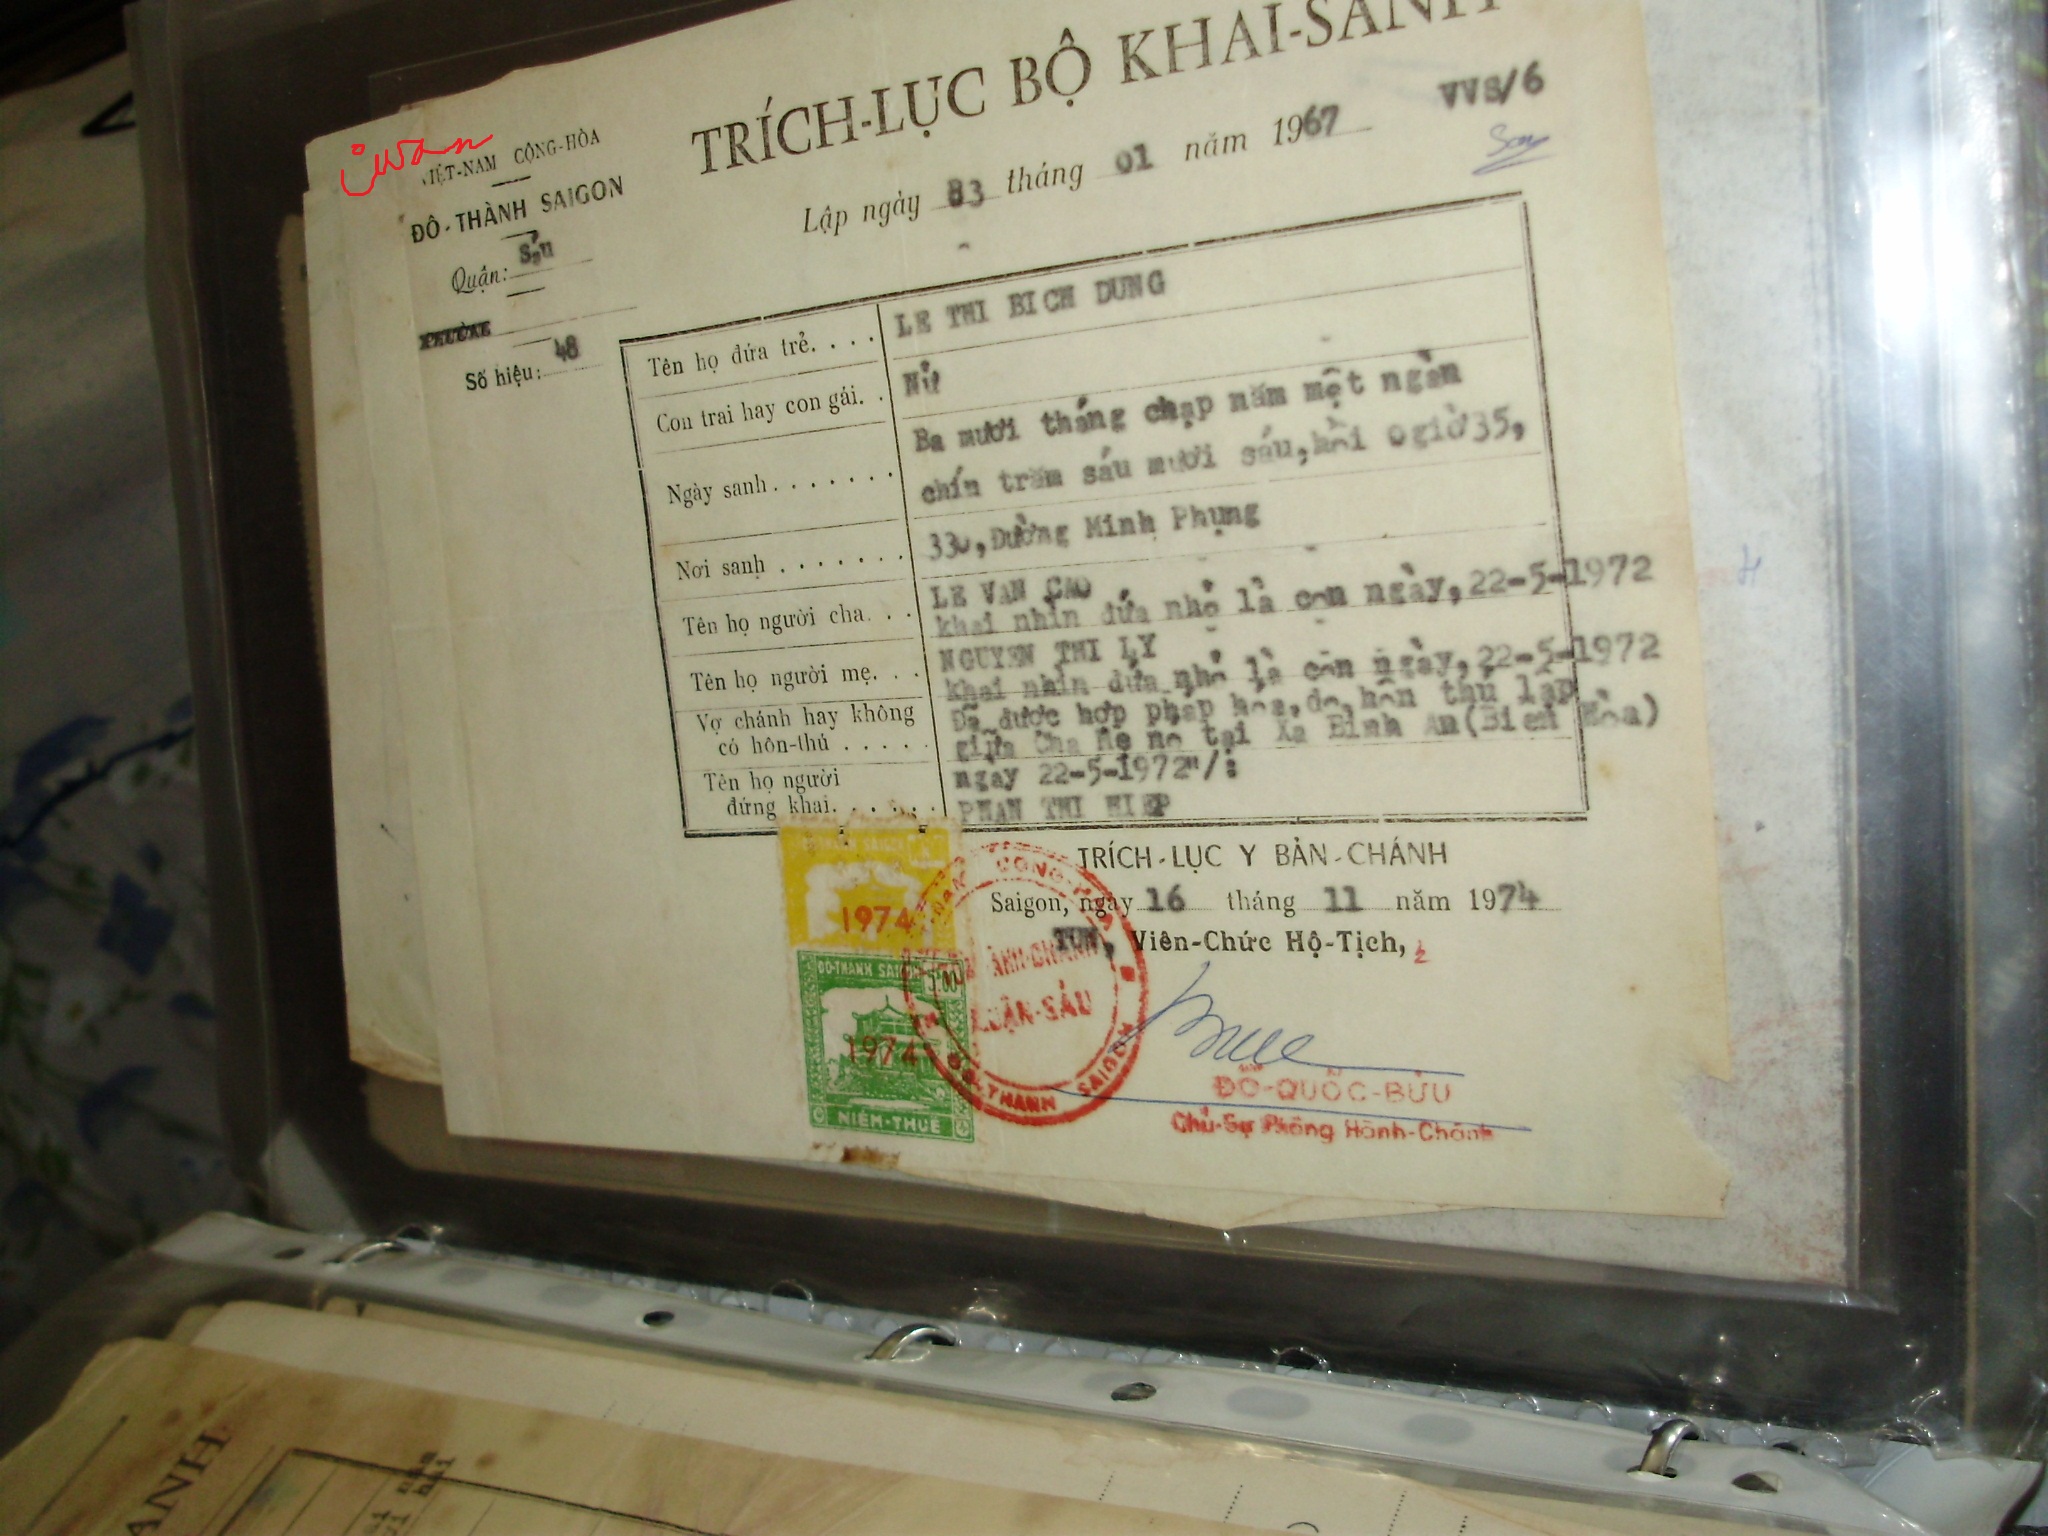 iwan
VIỆT-NAM CỘNG-HÒA
ĐÔ-THÀNH SAIGON
Quận: Sáu
Số hiệu: 48
TRÍCH-LỤC BỘ KHAI-SANH
VVS/6
Lập ngày 03 tháng 01 năm 1967
Tên họ đứa trẻ. . . . LE THI BICH DUNG
Con trai hay con gái. . Nữ
Ngày sanh . . . . . . . Ba mươi tháng chạp năm một ngàn
chín trăm sáu mươi sáu, hồi 0giờ35,
Nơi sanh . . . . . . . 330, Đường Minh Phụng
Tên họ người cha. . . LE VAN CAO
khai nhìn đứa nhỏ là con ngày, 22-5-1972
Tên họ người mẹ. . . NGUYEN THI LY
khai nhìn đứa nhỏ là con ngày, 22-5-1972
Vợ chánh hay không
có hôn-thú . . . . .
Đã được hợp pháp hóa, do, hôn thú lập
giữa Cha Mẹ nó tại Xã Bình An (Biên Hòa)
ngày 22-5-1972"/:
Tên họ người
đứng khai. . . . . . PHAN THI HIEP
TRÍCH-LỤC Y BẢN-CHÁNH
Saigon, ngày 16 tháng 11 năm 1974
TUN, Viên-Chức Hộ-Tịch,
ĐÔ-THÀNH SAIGON
1974
ĐÔ-THÀNH SAIGON
5.00
1974
NIÊM-THUẾ
QUẬN-SÁU
ĐÔ-THÀNH SAIGON
ĐỖ-QUỐC-BỬU
Chủ-Sự Phòng Hành-Chánh